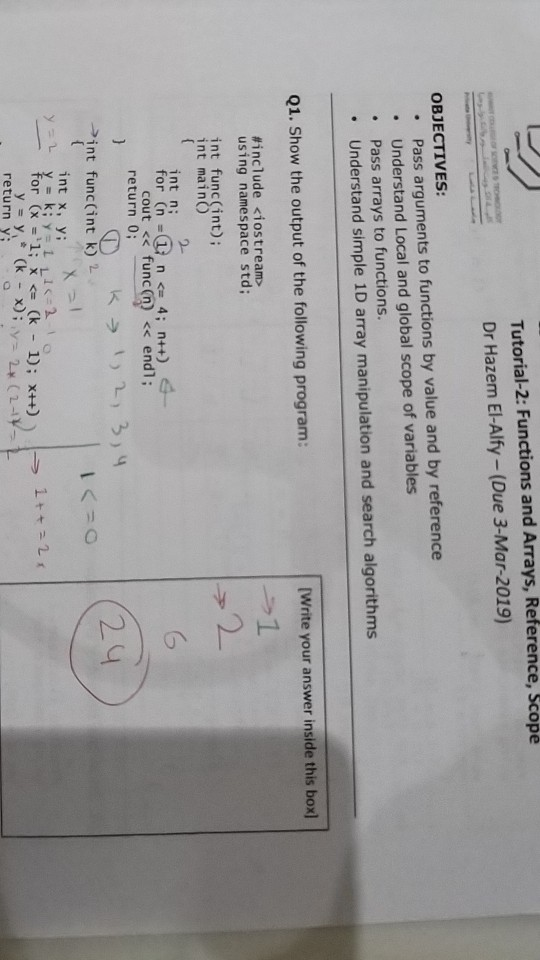 Tutorial-2: Functions and Arrays, Reference, Scope
Dr Hazem El-Alfy – (Due 3-Mar-2019)
OBJECTIVES:
• Pass arguments to functions by value and by reference
• Understand Local and global scope of variables
• Pass arrays to functions.
• Understand simple 1D array manipulation and search algorithms
Q1. Show the output of the following program:
[Write your answer inside this box]
#include <iostream>
using namespace std;
int func(int);
int main()
{
int n;
2
for (n = 1; n <= 4; n++) 4
cout << func(n) << endl;
return 0;
}
1 K → 1, 2, 3, 4
→ int func(int k) 2
{
int x, y; x = 1
1 <= 0
y = 2
y = k;
for (x = 1; x <= (k - 1); x++)
→ 1++ = 2
y = y * (k - x); y = 2* (2-1) = 2
return y;
→ 1
→ 2
6
24